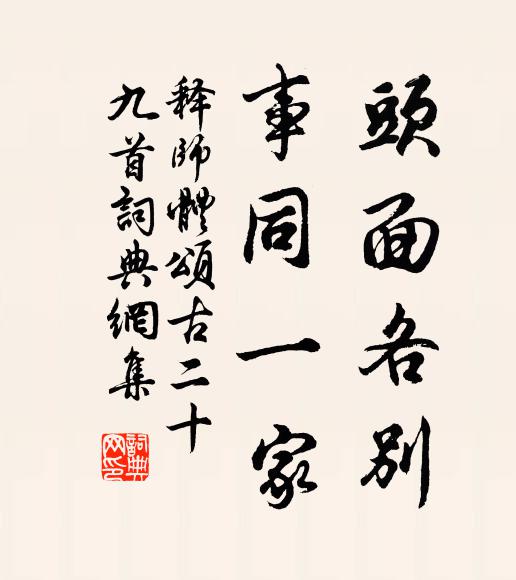 頭面各別
事同一家
释師體頌古二十
九首詞典網集
詞典网印